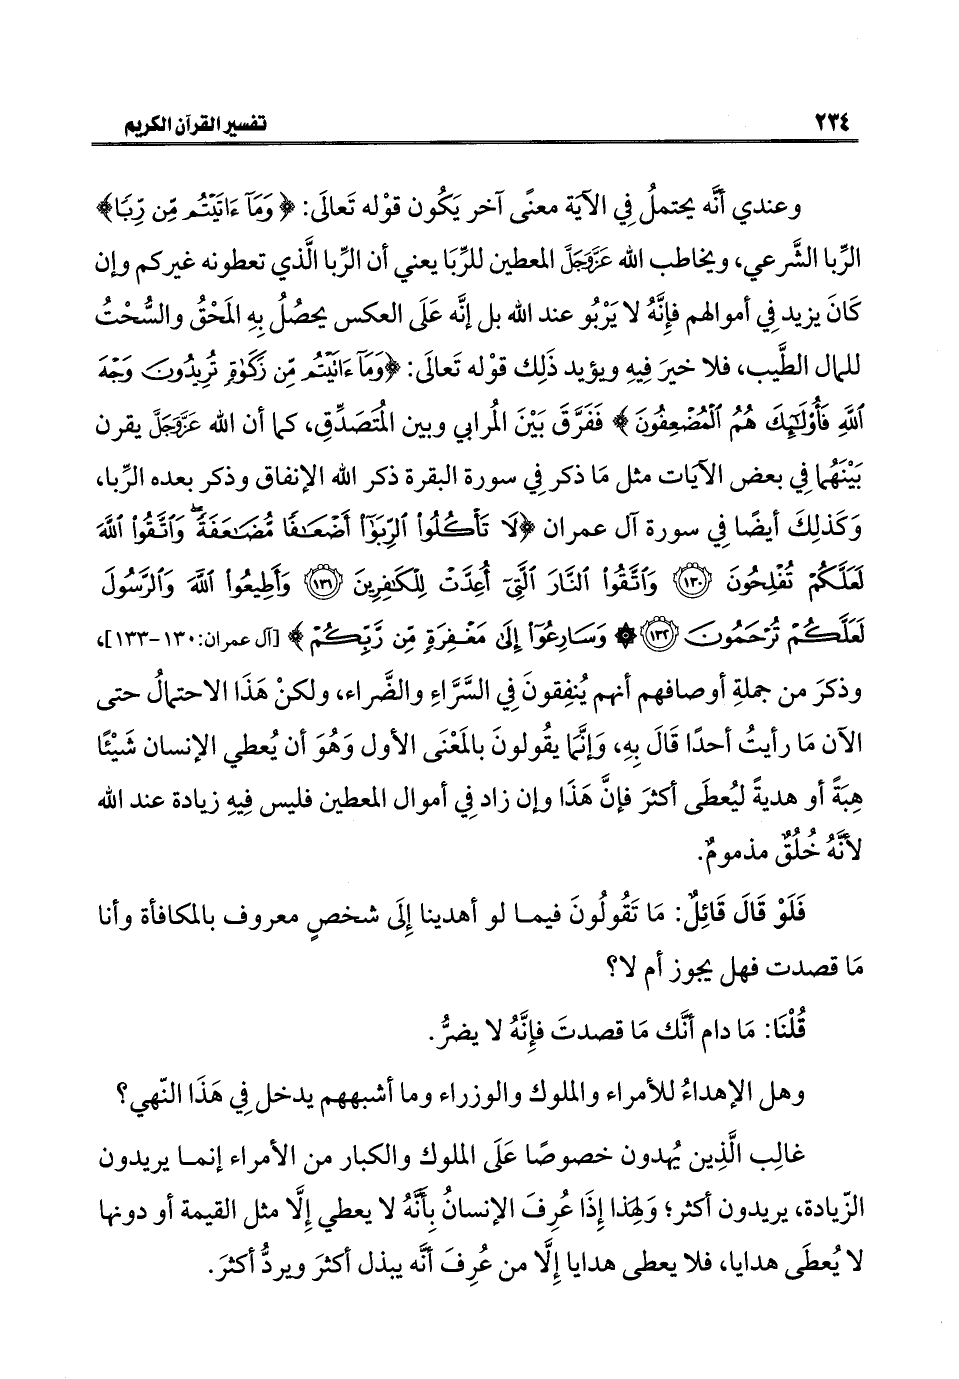 ٢٣٤
تفسير القرآن الكريم
وعندي أنَّه يحتملُ فِي الآية معنًى آخر يَكُون قوْله تَعالَى: ﴿وَمَآ ءَاتَيْتُم مِّن رِّبًا﴾
الرِّبا الشَّرعي، ويخاطب الله عَزَّوَجَلَّ المعطين للرِّبَا يعني أن الرِّبا الَّذي تعطونه غيركم وإن
كَانَ يزيد فِي أموالهم فإِنَّهُ لا يَرْبُو عند الله بل إنَّه عَلَى العكس يحصُلُ بِهِ المَحْقُ والسُّحْتُ
للمال الطَّيب، فلا خيرَ فِيهِ ويؤيد ذَلِك قوْله تَعَالَى: ﴿وَمَآ ءَاتَيْتُم مِّن زَكَوٰةٍ تُرِيدُونَ وَجْهَ
ٱللَّهِ فَأُو۟لَـٰٓئِكَ هُمُ ٱلْمُضْعِفُونَ﴾ فَفَرَّقَ بَيْنَ المُرابي وبين المُتَصَدِّقِ، كما أن الله عَزَّوَجَلَّ يقرن
بَيْنَهُما فِي بعض الآيَات مثل مَا ذكر فِي سورة البقرة ذكر الله الإنفاق وذكر بعده الرِّبا،
وَكَذلِكَ أيضًا فِي سورة آل عمران ﴿لَا تَأْكُلُوا۟ ٱلرِّبَوٰٓا۟ أَضْعَـٰفًا مُّضَـٰعَفَةً ۖ وَٱتَّقُوا۟ ٱللَّهَ
لَعَلَّكُمْ تُفْلِحُونَ ١٣٠ وَٱتَّقُوا۟ ٱلنَّارَ ٱلَّتِىٓ أُعِدَّتْ لِلْكَـٰفِرِينَ ١٣١ وَأَطِيعُوا۟ ٱللَّهَ وَٱلرَّسُولَ
لَعَلَّكُمْ تُرْحَمُونَ ١٣٢ ۞ وَسَارِعُوٓا۟ إِلَىٰ مَغْفِرَةٍ مِّن رَّبِّكُمْ﴾ [آل عمران:١٣٠-١٣٣]،
وذكرَ من جملةِ أوصافهم أنهم يُنفِقونَ فِي السَّرَّاءِ والضَّراء، ولكنْ هَذَا الاحتمالُ حتى
الآن مَا رأيتُ أحدًا قَالَ بِهِ، وَإنَّما يقُولونَ بالمَعْنَى الأول وَهُوَ أن يُعطي الإنسان شَيْئًا
هِبَةً أو هديةً ليُعطَى أكثرَ فإنَّ هَذَا وإن زاد فِي أموال المعطين فليس فِيهِ زيادة عند الله
لأنَّهُ خُلُقٌ مذمومٌ.
فَلَوْ قَالَ قَائِلٌ: مَا تَقُولُونَ فيما لو أهدينا إِلَى شخصٍ معروف بالمكافأة وأنا
مَا قصدت فهل يجوز أم لا؟
قُلْنَا: مَا دام أنَّك مَا قصدتَ فإِنَّهُ لا يضرُّ.
وهل الإهداءُ للأمراء والملوك والوزراء وما أشبههم يدخل فِي هَذَا النّهي؟
غالِب الَّذِين يُهدون خصوصًا عَلَى الملوك والكبار من الأمراء إنما يريدون
الزّيادة، يريدون أكثر؛ وَلِهَذا إِذَا عُرِفَ الإنسانُ بأنَّهُ لا يعطي إلَّا مثل القيمة أو دونها
لا يُعطَى هدايا، فلا يعطى هدايا إلَّا من عُرِفَ أنَّه يبذل أكثرَ ويردُّ أكثرَ.